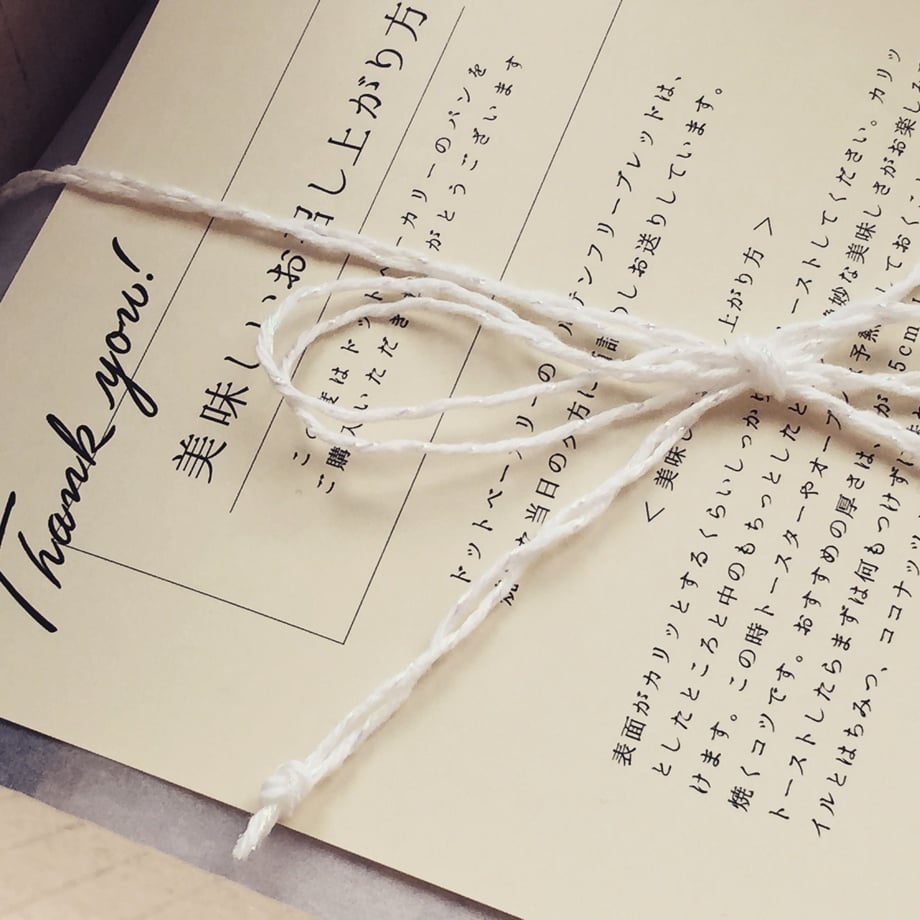 Thank you!
美味しいお召し上がり方
ドットベーカリーのパンを
ご購入いただき がとうございます
ドットベーカリーの テンフリーブレッドは、
当日の夕方に しお送りしています。
< 美味し 上がり方 >
表面がカリッとするくらいしっかり トーストしてください。カリッ
としたところと中のもちっとしたと 妙な美味しさがお楽し
けます。この時トースターやオーブン 予熱しておく
焼くコツです。おすすめの厚さは、 が 5cm
トーストしたらまずは何もつけず
イルとはちみつ、ココナッツ